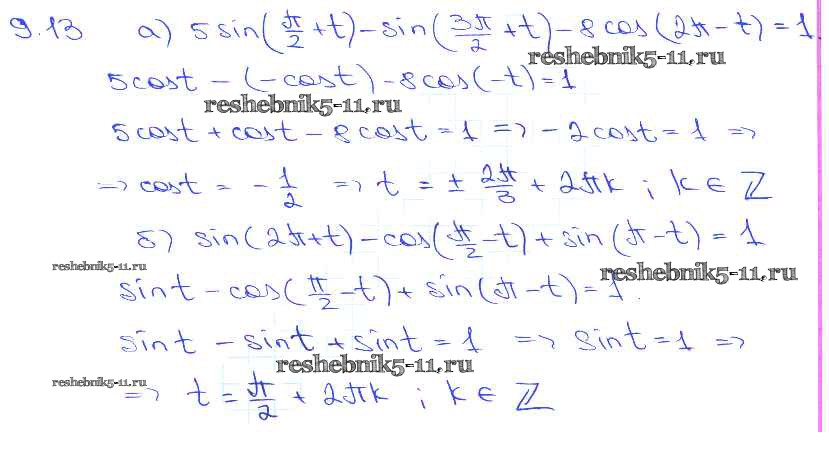 9.13 а) 5 sin(π/2 + t) - sin(3π/2 + t) - 8 cos(2π - t) = 1.
reshebnik5-11.ru
5 cos t - (-cos t) - 8 cos(-t) = 1
reshebnik5-11.ru
5 cos t + cos t - 8 cos t = 1 => -2 cos t = 1 =>
=> cos t = -1/2 => t = ± 2π/3 + 2πk ; k ∈ ℤ
б) sin(2π + t) - cos(π/2 - t) + sin(π - t) = 1
reshebnik5-11.ru reshebnik5-11.ru
sin t - cos(π/2 - t) + sin(π - t) = 1.
sin t - sin t + sin t = 1 => sin t = 1 =>
reshebnik5-11.ru
reshebnik5-11.ru
=> t = π/2 + 2πk ; k ∈ ℤ